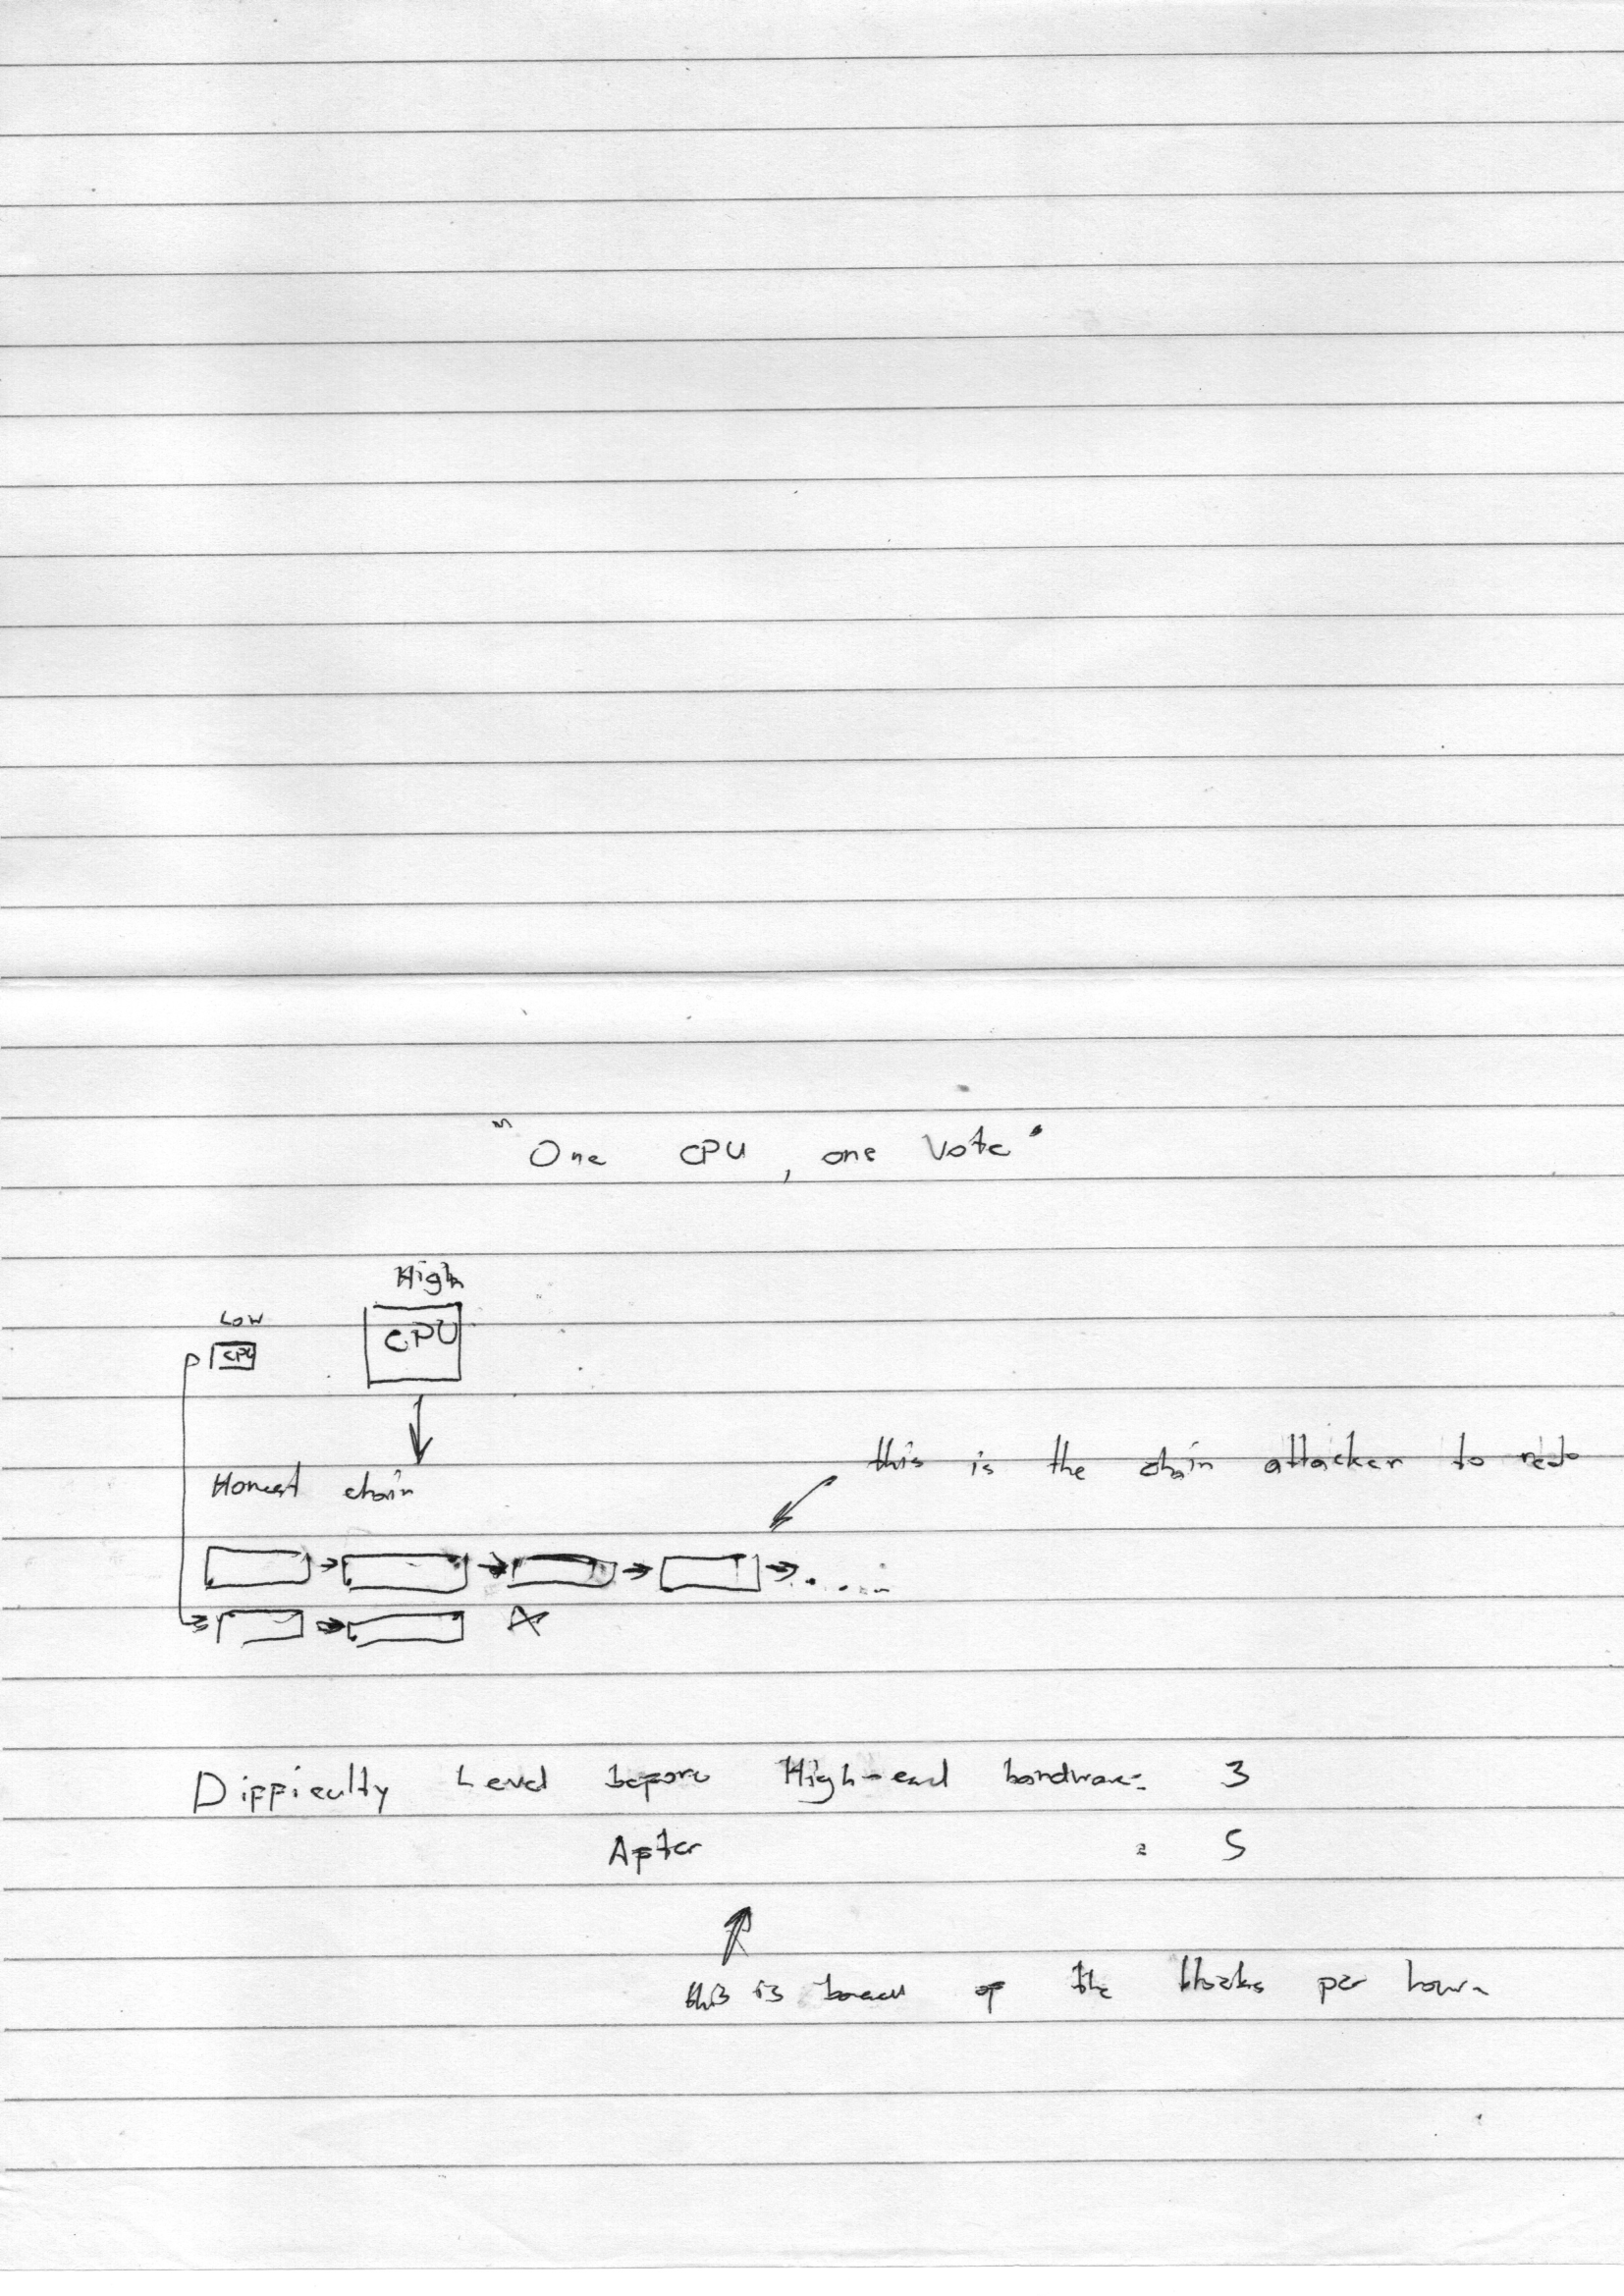 "One CPU, one Vote"
High
Low
CPU
CPU
Honest chain
this is the chain attacker to redo
Difficulty Level before High-end hardware: 3
After : 5
this is of the blocks per hour